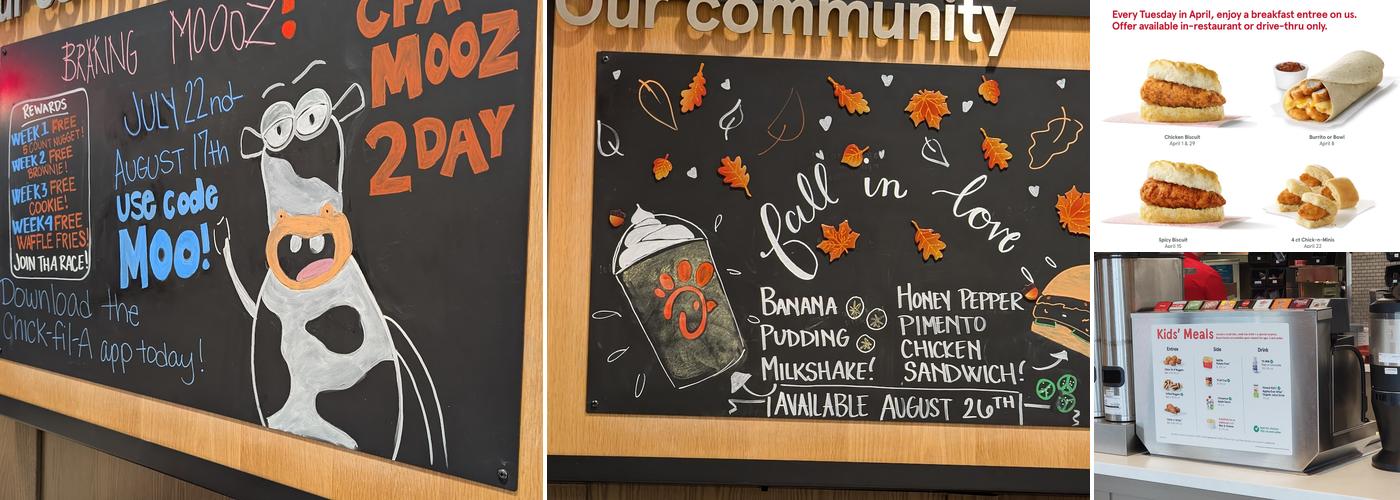 Our community
BRAKING MOOZ!
REWARDS
WEEK 1 FREE
5 COUNT NUGGET!
WEEK 2 FREE
BROWNIE!
WEEK 3 FREE
COOKIE!
WEEK 4 FREE
WAFFLE FRIES!
JOIN THA RACE!
JULY 22nd-
AUGUST 17th
use code
MOO!
Download the
Chick-fil-A app today!
CFA
MOOZ
2DAY
Our community
fall in love
BANANA
PUDDING
MILKSHAKE!
HONEY PEPPER
PIMENTO
CHICKEN
SANDWICH!
AVAILABLE AUGUST 26TH
Every Tuesday in April, enjoy a breakfast entree on us.
Offer available in-restaurant or drive-thru only.
Chicken Biscuit
April 1 & 29
Burrito or Bowl
April 8
Spicy Biscuit
April 15
4 ct Chick-n-Minis
April 22
Kids' Meals
Entree
Side
Drink